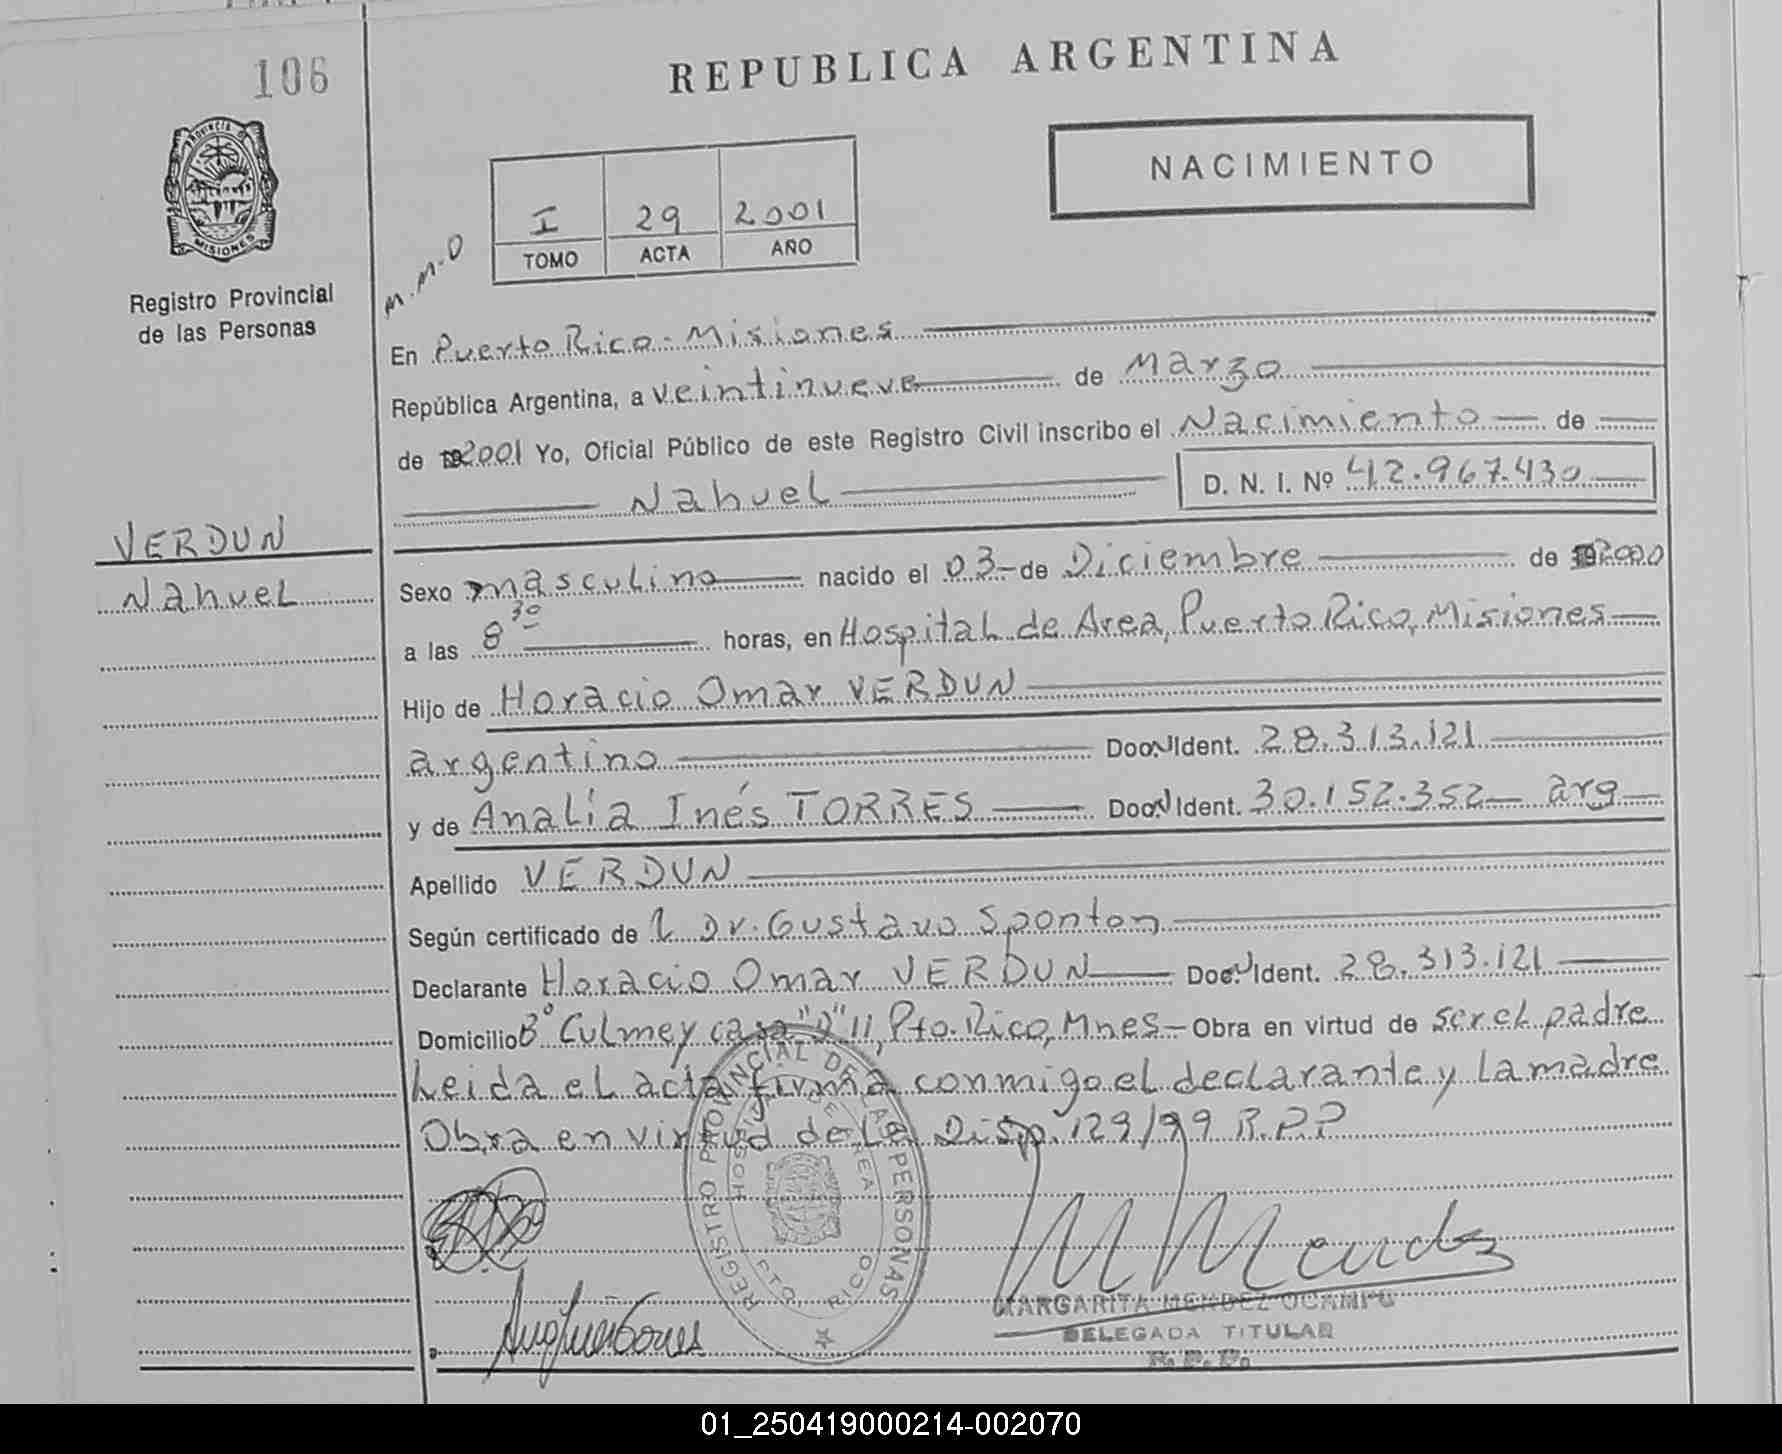 106
REPUBLICA ARGENTINA
NACIMIENTO
PROVINCIA D
MISIONES
Registro Provincial
de las Personas
I 29 2001
TOMO ACTA AÑO
M.M.O
En Puerto Rico - Misiones
República Argentina, a veintinueve de Marzo
de 2001 Yo, Oficial Público de este Registro Civil inscribo el Nacimiento de
Nahuel D. N. I. Nº 42.967.430
VERDUN
Nahuel
Sexo masculino nacido el 03 de Diciembre de 2000
a las 8 30 horas, en Hospital de Area, Puerto Rico, Misiones
Hijo de Horacio Omar VERDUN
argentino Doc. Ident. 28.313.121
y de Analía Inés TORRES Doc. Ident. 30.152.352 arg
Apellido VERDUN
Según certificado de l Dr. Gustavo Sponton
Declarante Horacio Omar VERDUN Doc. Ident. 28.313.121
Domicilio Bº Culmey casa "D" 11, Pto. Rico, Mnes - Obra en virtud de ser el padre
Leida el acta firma conmigo el declarante y La madre
Obra en virtud de La Disp. 129/99 R.P.P
REGISTRO PROVINCIAL DE LAS PERSONAS
HOSPITAL DE AREA
PTO. RICO
M Mendez
MARGARITA MENDEZ OCAMPO
DELEGADA TITULAR
R. P. P.
01_250419000214-002070